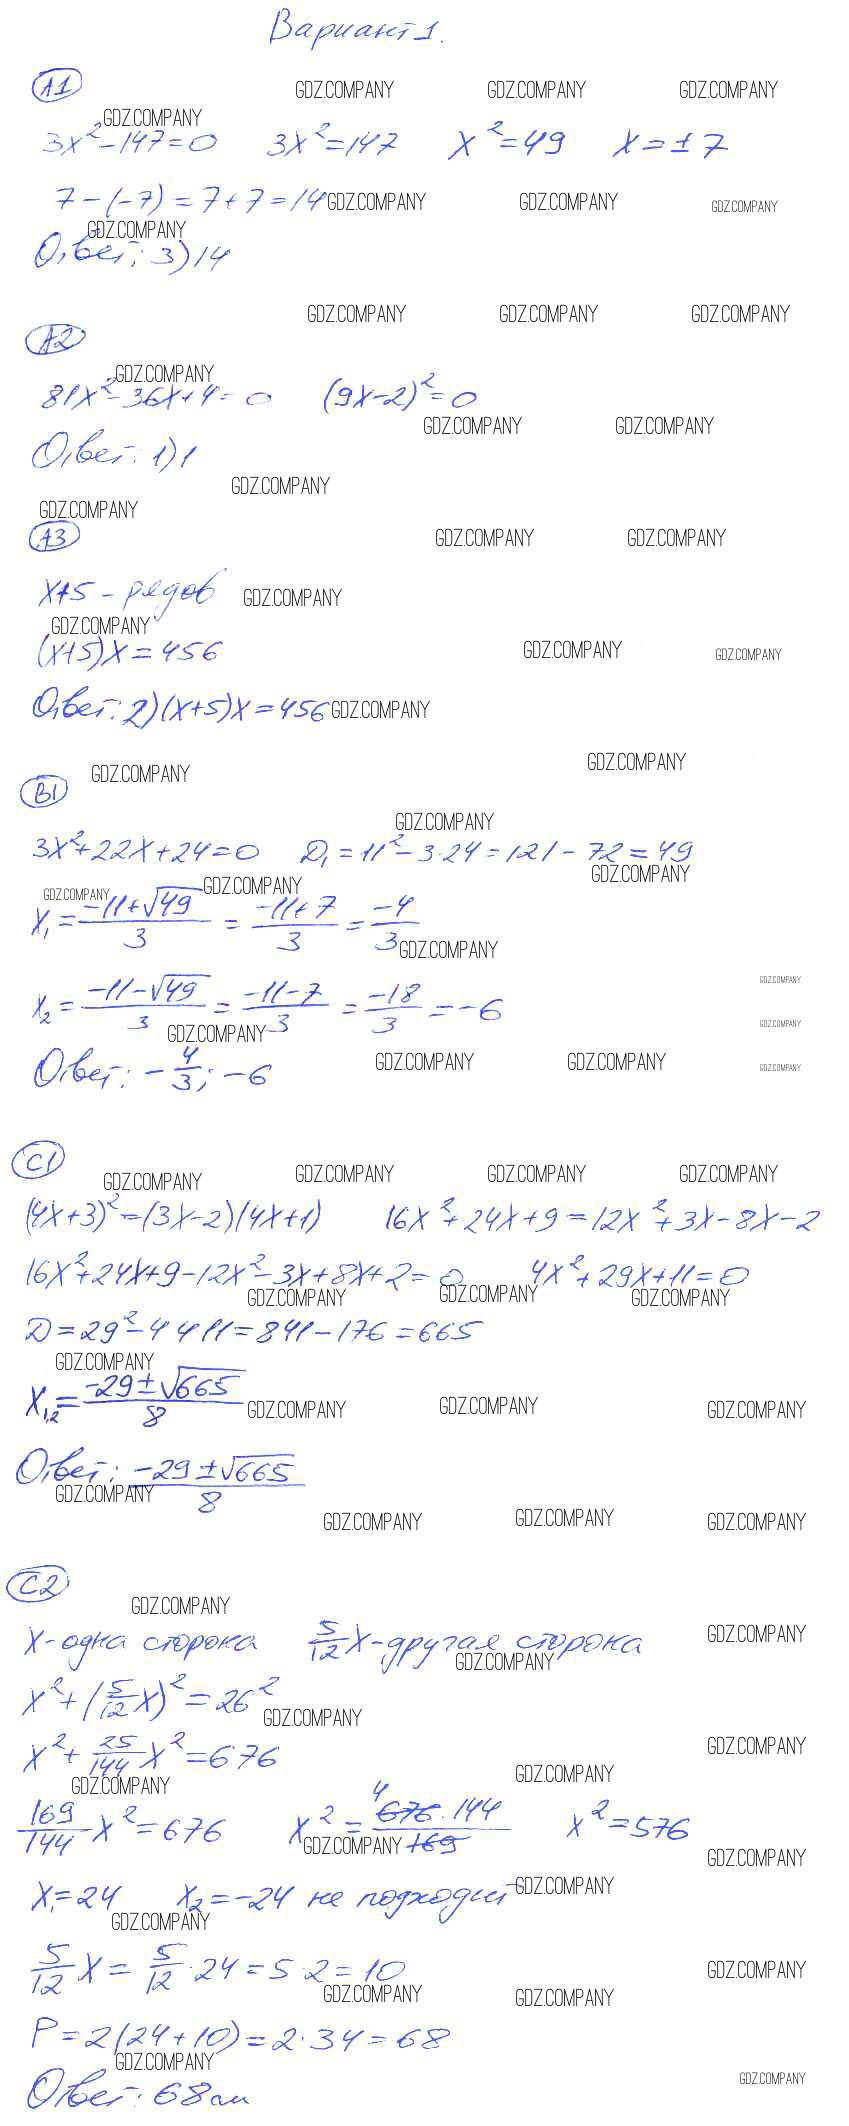 Вариант 1.
А1
GDZ.COMPANY GDZ.COMPANY GDZ.COMPANY
GDZ.COMPANY
3x²-147=0 3x²=147 x²=49 x=±7
7-(-7)=7+7=14 GDZ.COMPANY GDZ.COMPANY GDZ.COMPANY
GDZ.COMPANY
Ответ: 3) 14
GDZ.COMPANY GDZ.COMPANY GDZ.COMPANY
А2
GDZ.COMPANY
81x²-36x+4=0 (9x-2)²=0
GDZ.COMPANY GDZ.COMPANY
Ответ: 1) 1
GDZ.COMPANY
GDZ.COMPANY
А3
GDZ.COMPANY GDZ.COMPANY
x+5 - рядов GDZ.COMPANY
GDZ.COMPANY
(x+5)x=456 GDZ.COMPANY GDZ.COMPANY
Ответ: 2) (x+5)x=456 GDZ.COMPANY
GDZ.COMPANY GDZ.COMPANY
В1
GDZ.COMPANY
3x²+22x+24=0 D₁=11²-3·24=121-72=49
GDZ.COMPANY GDZ.COMPANY GDZ.COMPANY
x₁=(-11+√49)/3=(-11+7)/3=-4/3
GDZ.COMPANY
GDZ.COMPANY
x₂=(-11-√49)/3=(-11-7)/3=-18/3=-6
GDZ.COMPANY GDZ.COMPANY
Ответ: -4/3; -6 GDZ.COMPANY GDZ.COMPANY GDZ.COMPANY
С1
GDZ.COMPANY GDZ.COMPANY GDZ.COMPANY GDZ.COMPANY
(4x+3)²=(3x-2)(4x+1) 16x²+24x+9=12x²+3x-8x-2
16x²+24x+9-12x²-3x+8x+2=0 4x²+29x+11=0
GDZ.COMPANY GDZ.COMPANY GDZ.COMPANY
D=29²-4 4 11=841-176=665
GDZ.COMPANY
x₁,₂=(-29±√665)/8 GDZ.COMPANY GDZ.COMPANY GDZ.COMPANY
Ответ: (-29±√665)/8
GDZ.COMPANY
GDZ.COMPANY GDZ.COMPANY GDZ.COMPANY
С2
GDZ.COMPANY
x-одна сторона 5/12x-другая сторона GDZ.COMPANY
GDZ.COMPANY
x²+(5/12x)²=26²
GDZ.COMPANY
x²+25/144x²=676 GDZ.COMPANY
GDZ.COMPANY GDZ.COMPANY
169/144x²=676 x²=(4 676·144)/169 x²=576
GDZ.COMPANY GDZ.COMPANY
x₁=24 x₂=-24 не подходит GDZ.COMPANY
GDZ.COMPANY
5/12x=5/12·24=5·2=10 GDZ.COMPANY
GDZ.COMPANY GDZ.COMPANY
P=2(24+10)=2·34=68
GDZ.COMPANY
Ответ: 68см GDZ.COMPANY